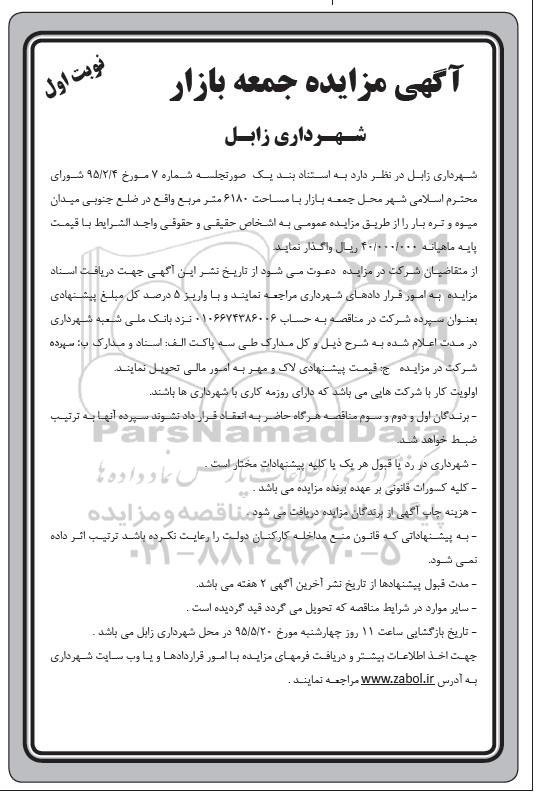 نوبت اول
آگهی مزایده جمعه بازار
شهرداری زابل
شهرداری زابل در نظر دارد به استناد بند یک صورتجلسه شماره ۷ مورخ ۹۵/۲/۴ شورای
محترم اسلامی شهر محل جمعه بازار با مساحت ۶۱۸۰ متر مربع واقع در ضلع جنوبی میدان
میوه و تره بار را از طریق مزایده عمومی به اشخاص حقیقی و حقوقی واجد الشرایط با قیمت
پایه ماهیانه ۴۰/۰۰۰/۰۰۰ ریال واگذار نماید.
از متقاضیان شرکت در مزایده دعوت می شود از تاریخ نشر این آگهی جهت دریافت اسناد
مزایده به امور قرار دادهای شهرداری مراجعه نمایند و با واریز ۵ درصد کل مبلغ پیشنهادی
بعنوان سپرده شرکت در مناقصه به حساب ۰۱۰۶۶۷۴۳۸۶۰۰۶ نزد بانک ملی شعبه شهرداری
در مدت اعلام شده به شرح ذیل و کل مدارک طی سه پاکت الف: اسناد و مدارک ب: سپرده
شرکت در مزایده ج: قیمت پیشنهادی لاک و مهر به امور مالی تحویل نمایند.
اولویت کار با شرکت هایی می باشد که دارای روزمه کاری با شهرداری ها باشند.
- برندگان اول و دوم و سوم مناقصه هرگاه حاضر به انعقاد قرار داد نشوند سپرده آنها به ترتیب
ضبط خواهد شد.
- شهرداری در رد یا قبول هر یک یا کلیه پیشنهادات مختار است .
- کلیه کسورات قانونی بر عهده برنده مزایده می باشد .
- هزینه چاپ آگهی از برندگان مزایده دریافت می شود .
- به پیشنهاداتی که قانون منع مداخله کارکنان دولت را رعایت نکرده باشد ترتیب اثر داده
نمی شود.
- مدت قبول پیشنهادها از تاریخ نشر آخرین آگهی ۲ هفته می باشد.
- سایر موارد در شرایط مناقصه که تحویل می گردد قید گردیده است .
- تاریخ بازگشایی ساعت ۱۱ روز چهارشنبه مورخ ۹۵/۵/۲۰ در محل شهرداری زابل می باشد .
جهت اخذ اطلاعات بیشتر و دریافت فرمهای مزایده با امور قراردادها و یا وب سایت شهرداری
به آدرس www.zabol.ir مراجعه نمایند .
ParsNamadData
۰۲۱-۸۸۳۴۹۶۷۰-۵